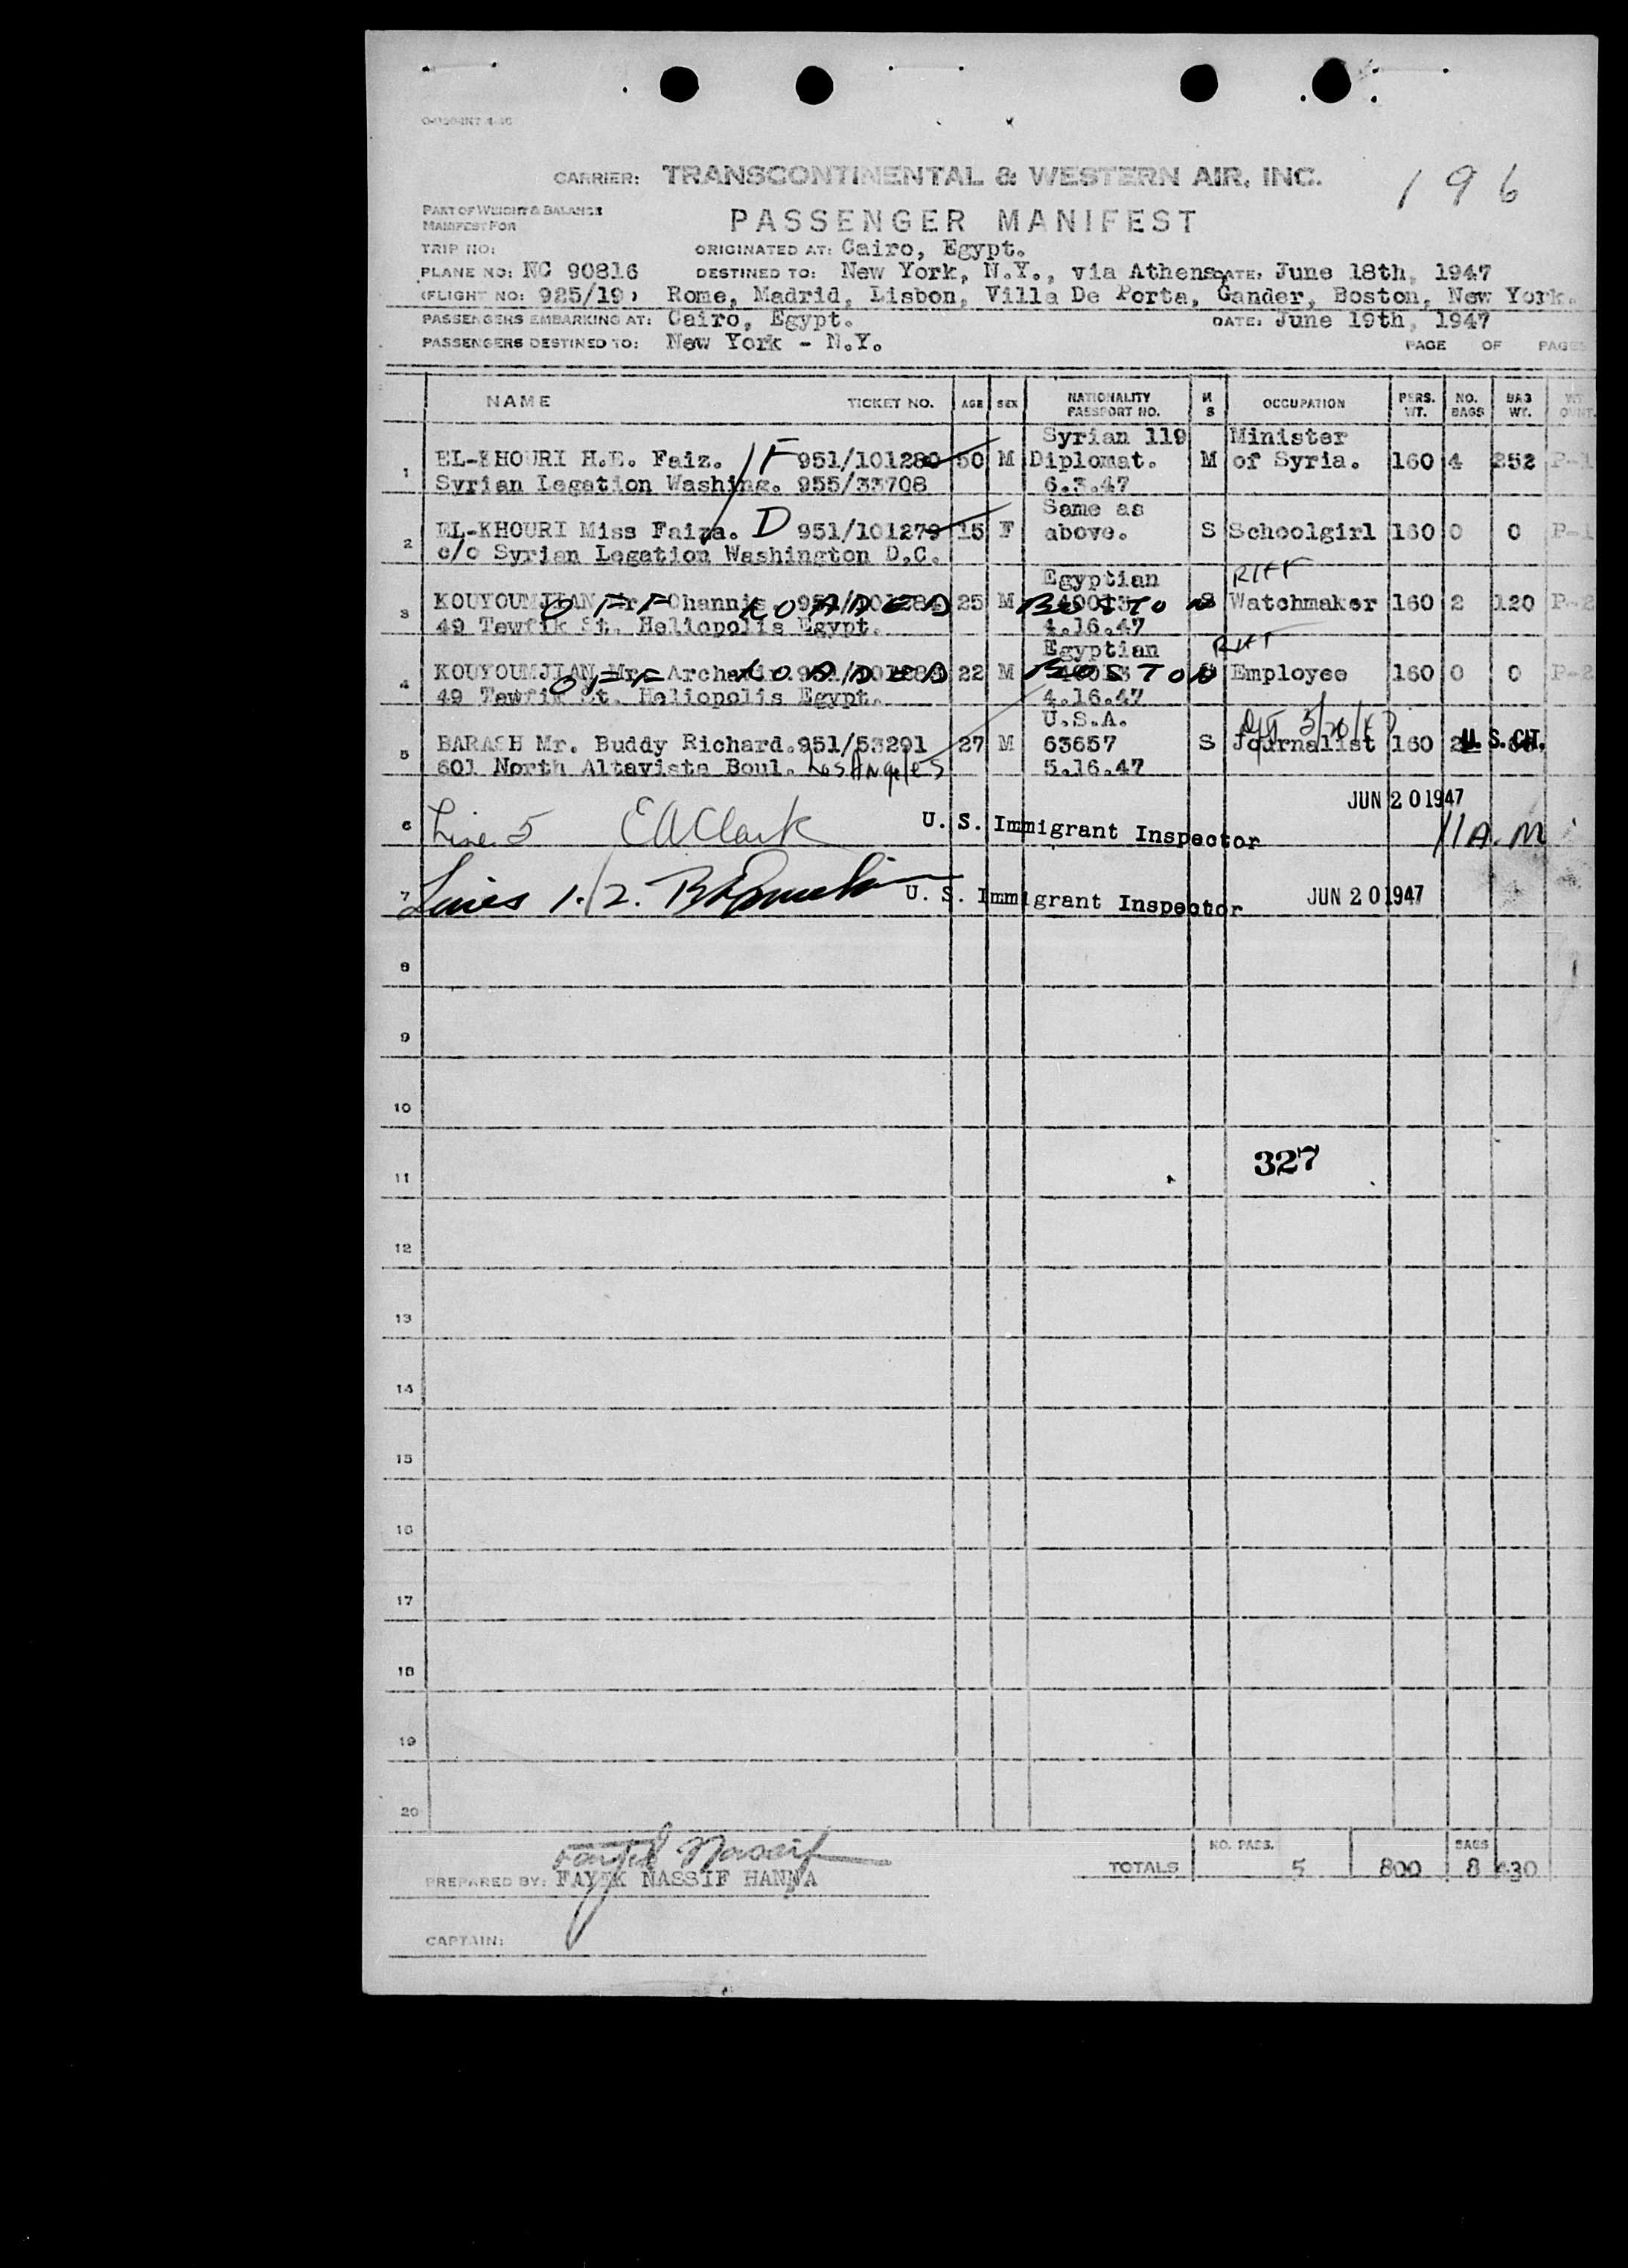 CARRIER: TRANSCONTINENTAL & WESTERN AIR, INC. 196
PART OF WEIGHT & BALANCE
MANIFEST FOR
PASSENGER MANIFEST
TRIP NO: ORIGINATED AT: Cairo, Egypt.
PLANE NO: NC 90816 DESTINED TO: New York, N.Y., via Athens, DATE: June 18th, 1947
(FLIGHT NO: 925/19) Rome, Madrid, Lisbon, Villa De Porta, Gander, Boston, New York.
PASSENGERS EMBARKING AT: Cairo, Egypt. DATE: June 19th, 1947
PASSENGERS DESTINED TO: New York - N.Y. PAGE OF PAGES
NAME TICKET NO. AGE SEX NATIONALITY PASSPORT NO. M S OCCUPATION PERS. WT. NO. BAGS BAG WT.
Syrian 119 Minister
1 EL-KHOURI H.E. Faiz. 1F 951/101280 50 M Diplomat. M of Syria. 160 4 252 P-1
Syrian Legation Washing. 955/33708 6.3.47
Same as
2 EL-KHOURI Miss Faiza. D 951/101279 15 F above. S Schoolgirl 160 0 0 P-1
c/o Syrian Legation Washington D.C.
Egyptian
3 KOUYOUMJIAN Mr. Ohannis. OFF LOADED 25 M BOSTON S Watchmaker 160 2 120 P-2
49 Tewfik St. Heliopolis Egypt. 4.16.47
Egyptian
4 KOUYOUMJIAN Mr. OFF LOADED 22 M BOSTON Employee 160 0 0 P-2
49 Tewfik St. Heliopolis Egypt. 4.16.47
U.S.A.
5 BARASH Mr. Buddy Richard. 951/53291 27 M 63657 S Journalist 160 2 U.S. CIT.
601 North Altavista Boul. Los Angeles 5.16.47
JUN 20 1947
6 Line 5 EA Clark U. S. Immigrant Inspector 11 A.M
7 Lines 1. / 2. U. S. Immigrant Inspector JUN 20 1947
8
9
10
327
11
12
13
14
15
16
17
18
19
20
NO. PASS. BAGS
TOTALS 5 800 8 430
PREPARED BY: FAYEK NASSIF HANNA
CAPTAIN: